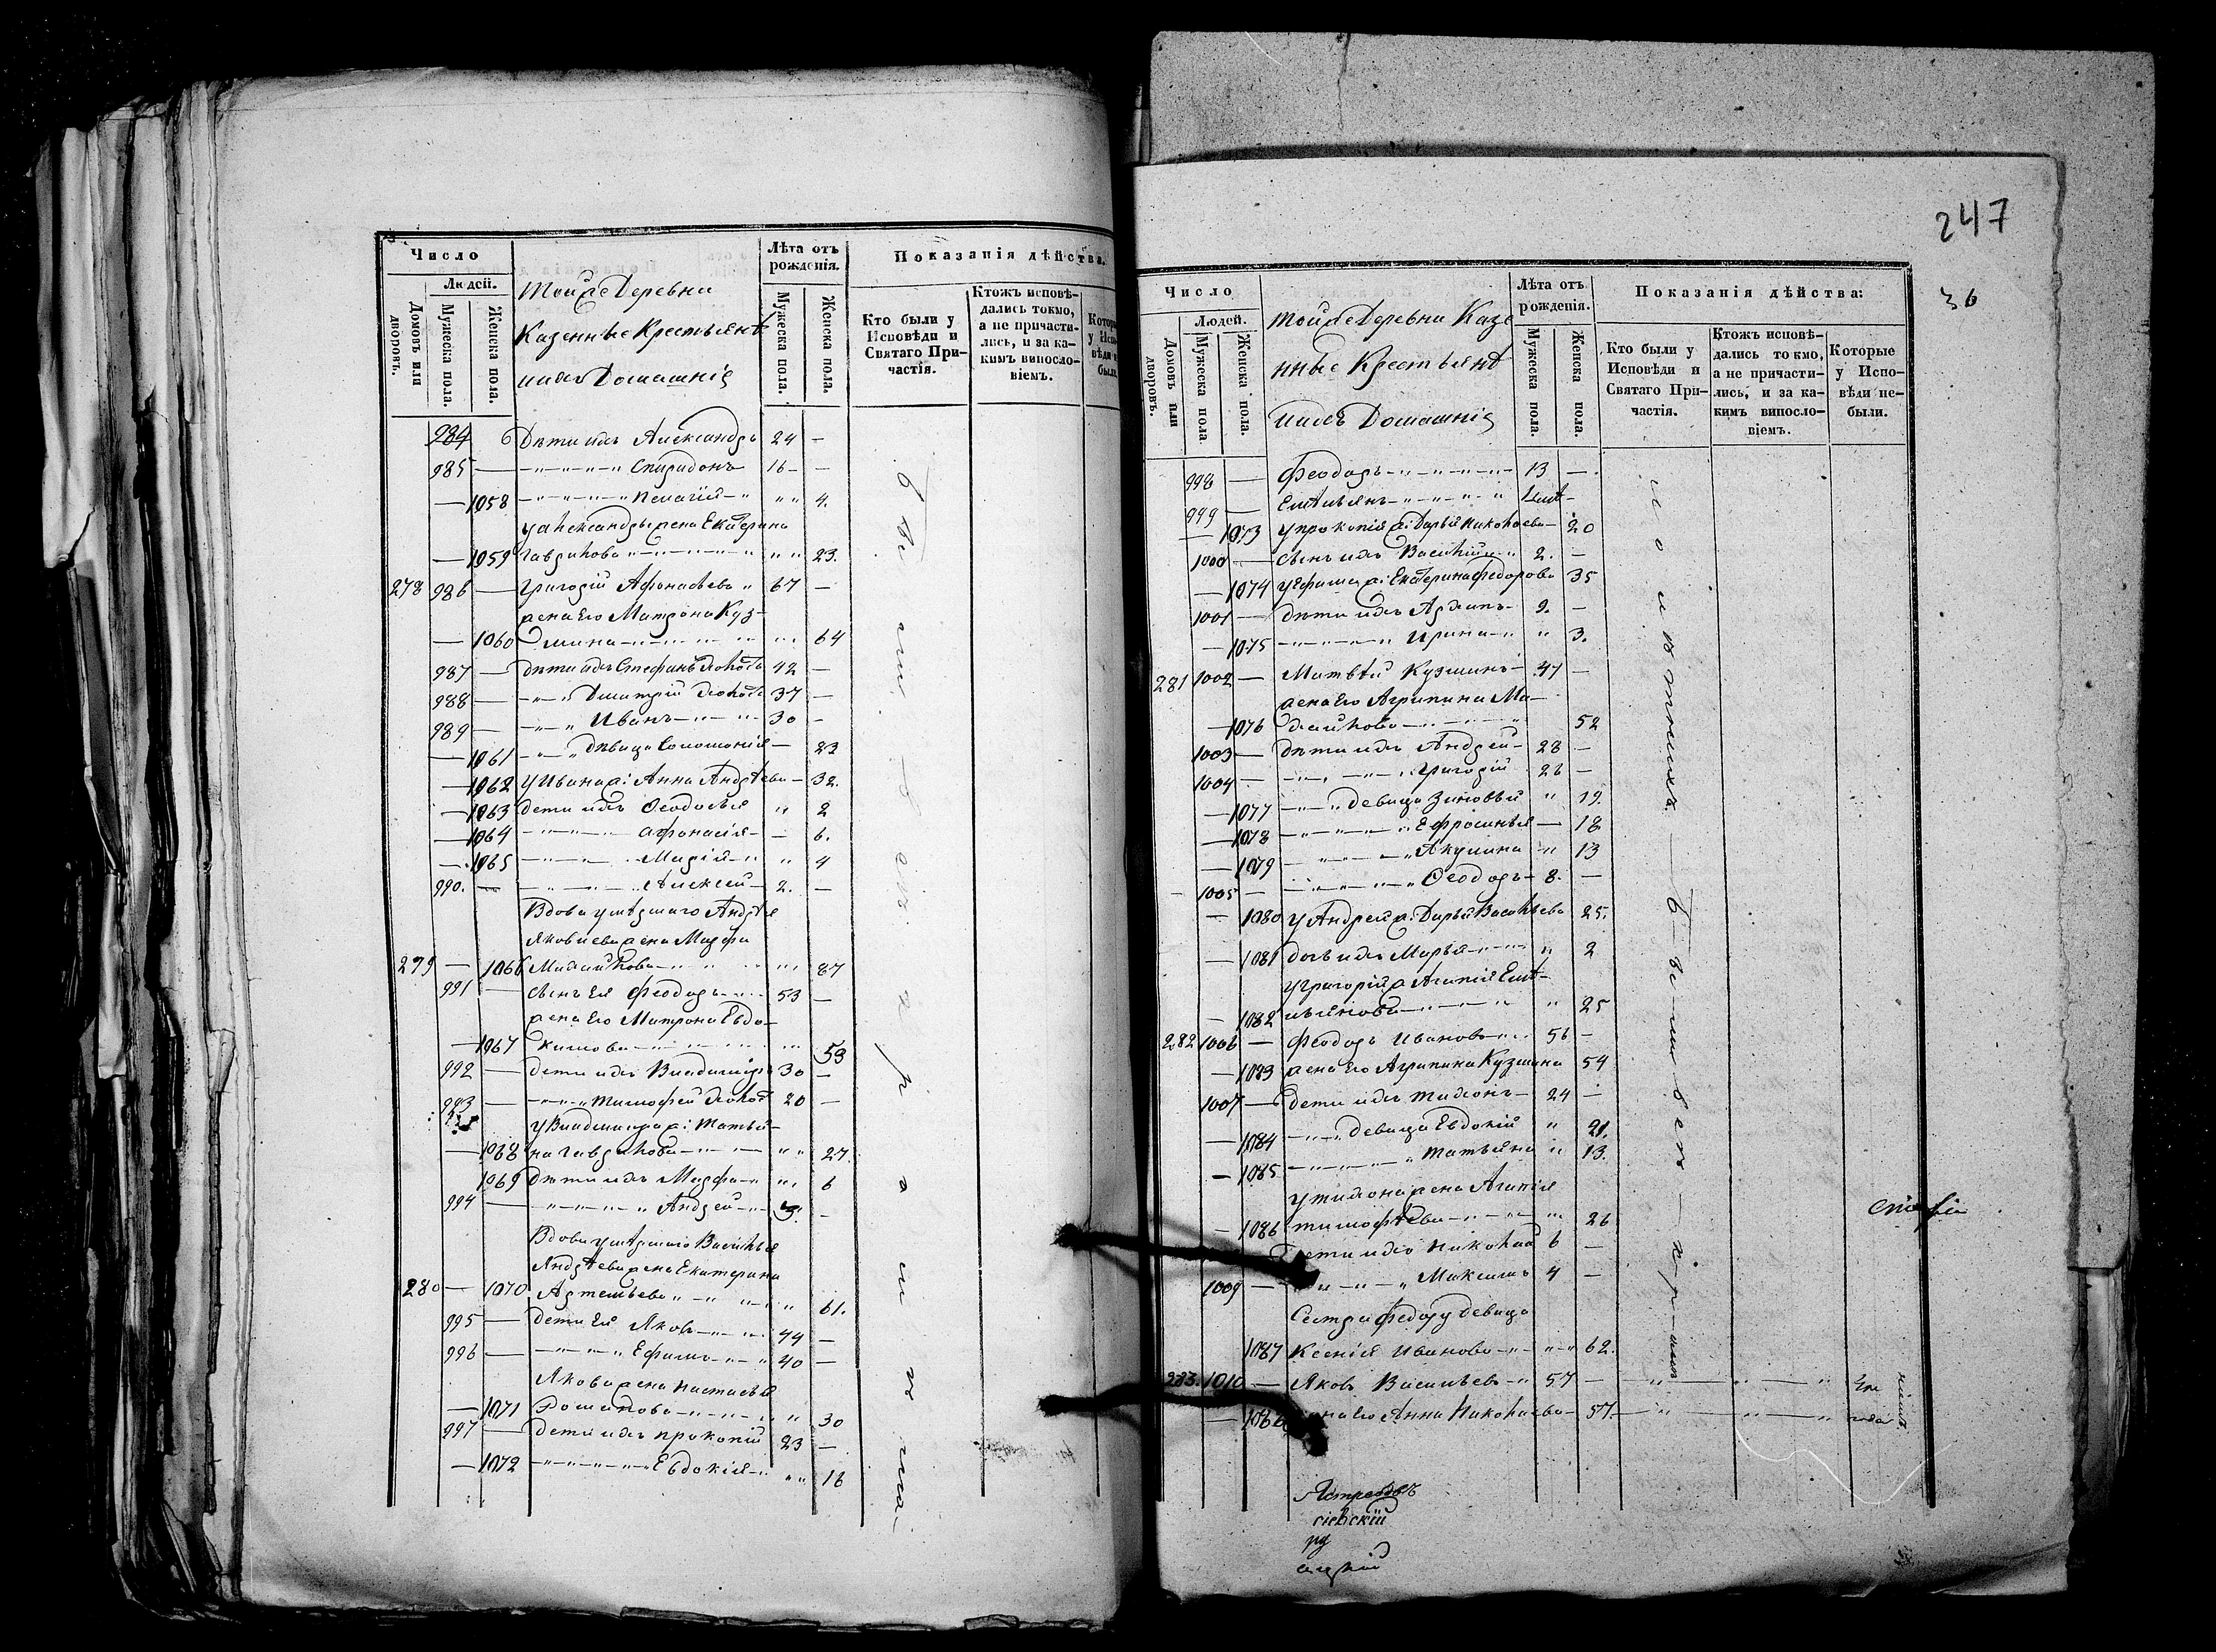 Число
Людей.
Домовъ или дворовъ.
Мужеска пола.
Женска пола.
Тойже Деревни
Казенные Крестьяне
иихъ Домашнія
Лѣта отъ рожденія.
Мужеска пола.
Женска пола.
Показанія дѣйства.
Кто были у Исповѣди и Святаго Причастія.
Ктожъ исповѣдались токмо, а не причастились, и за какимъ винословіемъ.
984 Дѣти ихъ Александръ 24 —
985 — Спиридонъ 16 —
— 1058 Пелагія 4.
у Александра жена Екатерина
— 1059 Гаврилова 23.
278 986 — Григорій Афонасьевъ 67 —
жена Его Матрона Куз-
— 1060 мина 64
987 — Дѣти ихъ Стефанъ холостъ 42 —
988 — Димитрій холостъ 37 —
989 — Иванъ 30 —
— 1061 дѣвица Соломонія — 23
— 1062 У Ивана ж: Анна Андрѣева — 32.
— 1063 дети ихъ Феодосья 2
— 1064 Афонасія — 6.
— 1065 Марія 4
990. — Алексей 2. —
Вдова умѣршаго Андрѣя
Яковлева жена Марфа
279 — 1066 Михайлова 87
991 — сынъ Ея Феодоръ 53 —
жена Его Матрона Евдо-
— 1067 кимова 53
992 — дети ихъ Владимиръ 30 —
993 — Тимофей холост 20 —
у Владимира ж: Татья-
— 1068 на Гаврилова 27.
1069 Дѣти ихъ Марфа 6
994 — Андрей 3. —
Вдова умѣршаго Василья
Андрѣева жена Екатерина
280 — 1070 Артемьева 61.
995 — дети Ея Яковъ 44 —
996 — Ефимъ 40 —
Якова жена Настасья
— 1071 Романова 30
997 — дети ихъ Прокопій 23 —
— 1072 Евдокія 16
247
36
Число
Людей.
Домовъ или дворовъ.
Мужеска пола
Женска пола.
Тойже Деревни Казе
нные Крестьяне
иихъ Домашнія
Лѣта отъ рожденія.
Мужеска пола.
Женска пола.
Показанія дѣйства:
Кто были у Исповѣди и Святаго Причастія.
Ктожъ исповѣдались токмо, а не причастились, и за какимъ винословіемъ.
Которые у Исповѣди небыли.
998 — Феодоръ 13 —
999 — Емѣльянъ
— 1073 у Прокопія ж: Дарья Николаева — 20
1000 — сынъ ихъ Василій 2. —
— 1074 у Ефима ж: Екатерина Федорова 35
1001 — Дѣти ихъ Архипъ 9. —
— 1075 Ирина 3.
281 1002 — Матвѣй Кузминъ 47 —
жена Его Агрипина Ми-
— 1076 хайлова 52
1003 — Дѣти ихъ Андрей 28 —
1004 — Григорій 26 —
— 1077 девица Зиновья 19.
— 1078 Ефросинья — 18
— 1079 Акулина 13
1005 — Феодоръ 8. —
— 1080 у Андрея ж: Дарья Васильева 25.
— 1081 дочь ихъ Марья 2
у Григорія ж Агапія Емѣ-
— 1082 льянова 25
282 1006 — Феодоръ Ивановъ 56 —
— 1083 жена Его Агрипина Кузмина 54
1007 — дети ихъ Тихонъ 24 —
— 1084 девица Евдокія 21.
— 1085 Татьяна 13.
у Тихона жена Агапія
— 1086 Тимофѣева 26
Дети ихъ Николай 6 —
1009 — Максимъ 4 —
Сестра Федору девица
1087 Ксенія Иванова 62.
283. 1010 — Яковъ Васильевъ 57 —
— 1088 жена Его Анна Николаева — 57.